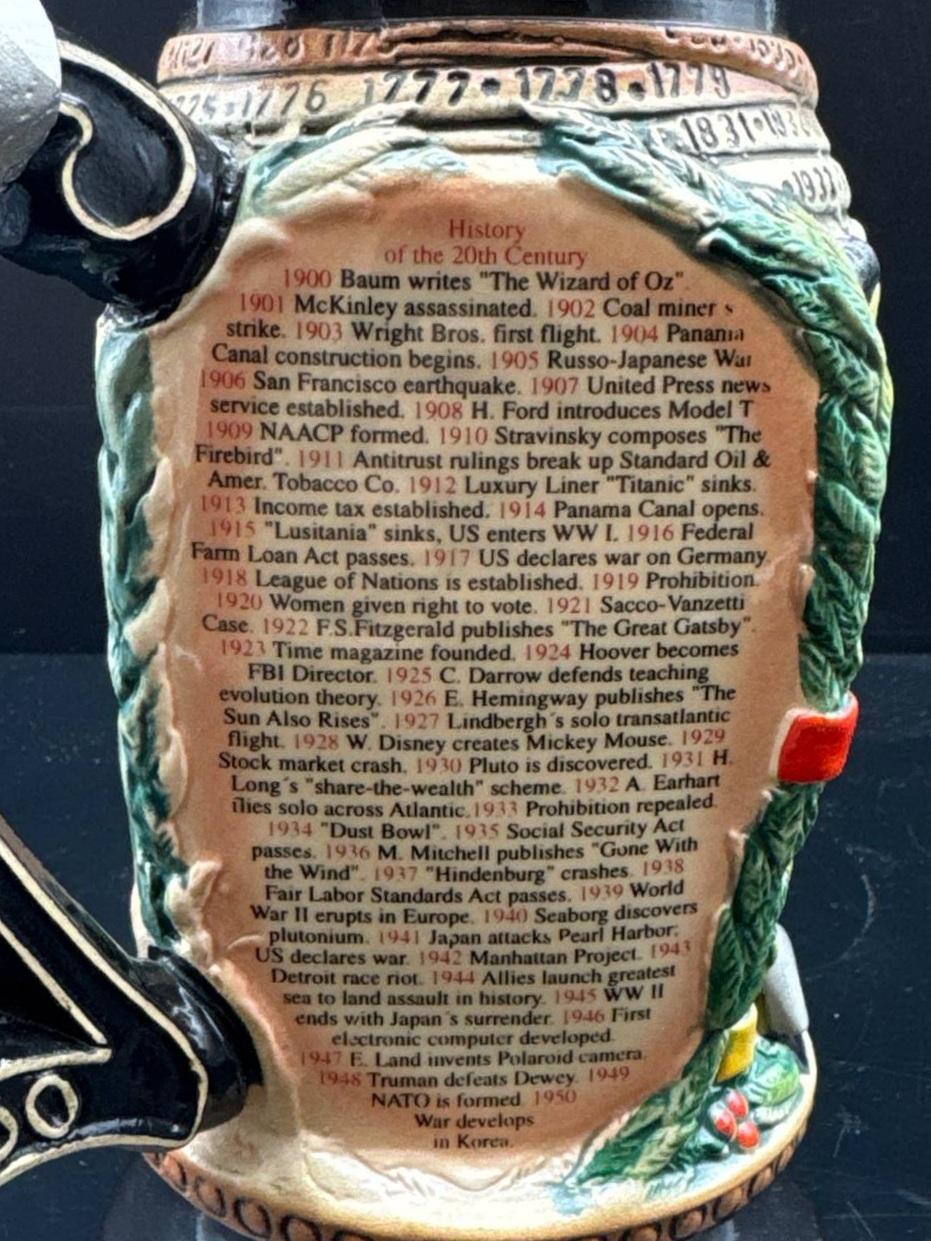 1776 1777 • 1778 • 1779
1831 • 
History
of the 20th Century
1900 Baum writes "The Wizard of Oz".
1901 McKinley assassinated. 1902 Coal miner s
strike. 1903 Wright Bros. first flight. 1904 Panama
Canal construction begins. 1905 Russo-Japanese War
1906 San Francisco earthquake. 1907 United Press news
service established. 1908 H. Ford introduces Model T
1909 NAACP formed. 1910 Stravinsky composes "The
Firebird". 1911 Antitrust rulings break up Standard Oil &
Amer. Tobacco Co. 1912 Luxury Liner "Titanic" sinks.
1913 Income tax established. 1914 Panama Canal opens.
1915 "Lusitania" sinks, US enters WW I. 1916 Federal
Farm Loan Act passes. 1917 US declares war on Germany.
1918 League of Nations is established. 1919 Prohibition.
1920 Women given right to vote. 1921 Sacco-Vanzetti
Case. 1922 F.S.Fitzgerald publishes "The Great Gatsby".
1923 Time magazine founded. 1924 Hoover becomes
FBI Director. 1925 C. Darrow defends teaching
evolution theory. 1926 E. Hemingway publishes "The
Sun Also Rises". 1927 Lindbergh´s solo transatlantic
flight. 1928 W. Disney creates Mickey Mouse. 1929
Stock market crash. 1930 Pluto is discovered. 1931 H.
Long´s "share-the-wealth" scheme. 1932 A. Earhart
flies solo across Atlantic.1933 Prohibition repealed.
1934 "Dust Bowl". 1935 Social Security Act
passes. 1936 M. Mitchell publishes "Gone With
the Wind". 1937 "Hindenburg" crashes. 1938
Fair Labor Standards Act passes. 1939 World
War II erupts in Europe. 1940 Seaborg discovers
plutonium. 1941 Japan attacks Pearl Harbor;
US declares war. 1942 Manhattan Project. 1943
Detroit race riot. 1944 Allies launch greatest
sea to land assault in history. 1945 WW II
ends with Japan´s surrender. 1946 First
electronic computer developed.
1947 E. Land invents Polaroid camera.
1948 Truman defeats Dewey. 1949
NATO is formed 1950
War develops
in Korea.